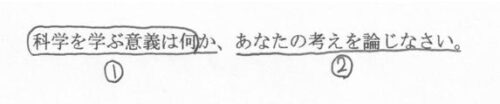 科学を学ぶ意義は何か、あなたの考えを論じなさい。
① ②